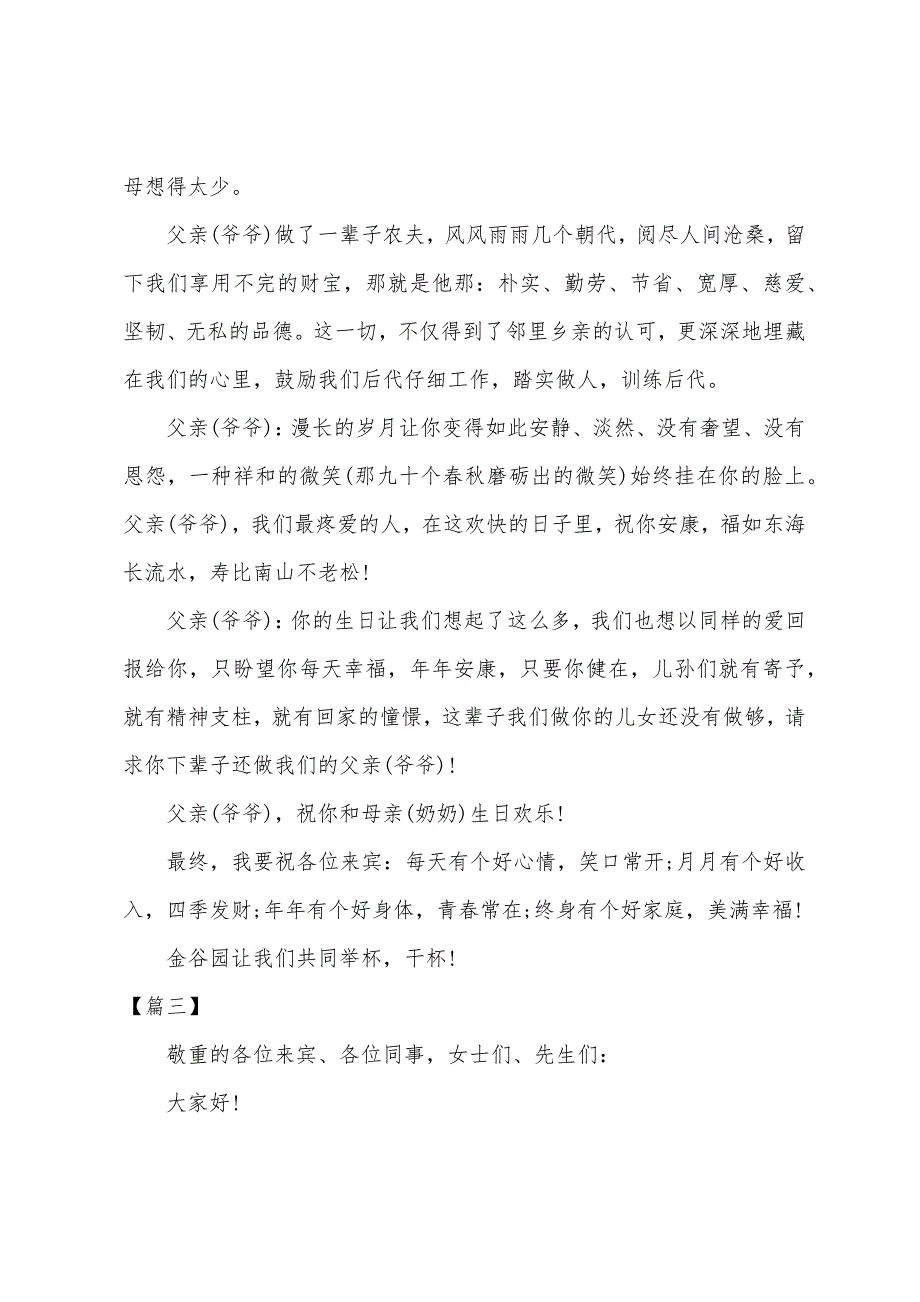 母想得太少。
父亲(爷爷)做了一辈子农夫，风风雨雨几个朝代，阅尽人间沧桑，留
下我们享用不完的财宝，那就是他那：朴实、勤劳、节省、宽厚、慈爱、
坚韧、无私的品德。这一切，不仅得到了邻里乡亲的认可，更深深地埋藏
在我们的心里，鼓励我们后代仔细工作，踏实做人，训练后代。
父亲(爷爷)：漫长的岁月让你变得如此安静、淡然、没有奢望、没有
恩怨，一种祥和的微笑(那九十个春秋磨砺出的微笑)始终挂在你的脸上。
父亲(爷爷)，我们最疼爱的人，在这欢快的日子里，祝你安康，福如东海
长流水，寿比南山不老松!
父亲(爷爷)：你的生日让我们想起了这么多，我们也想以同样的爱回
报给你，只盼望你每天幸福，年年安康，只要你健在，儿孙们就有寄予，
就有精神支柱，就有回家的憧憬，这辈子我们做你的儿女还没有做够，请
求你下辈子还做我们的父亲(爷爷)!
父亲(爷爷)，祝你和母亲(奶奶)生日欢乐!
最终，我要祝各位来宾：每天有个好心情，笑口常开;月月有个好收
入，四季发财;年年有个好身体，青春常在;终身有个好家庭，美满幸福!
金谷园让我们共同举杯，干杯!
【篇三】
敬重的各位来宾、各位同事，女士们、先生们：
大家好!